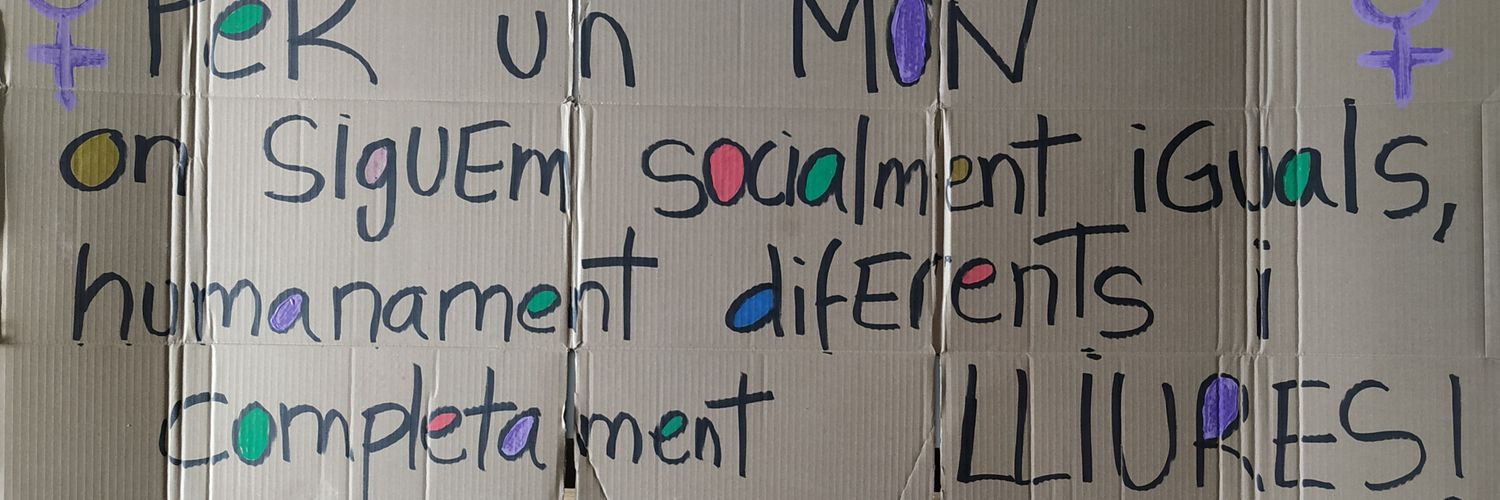 PeR un MÓN
on siguEm socialment iGuals,
humanament difErenTs i
completament LLIURES!